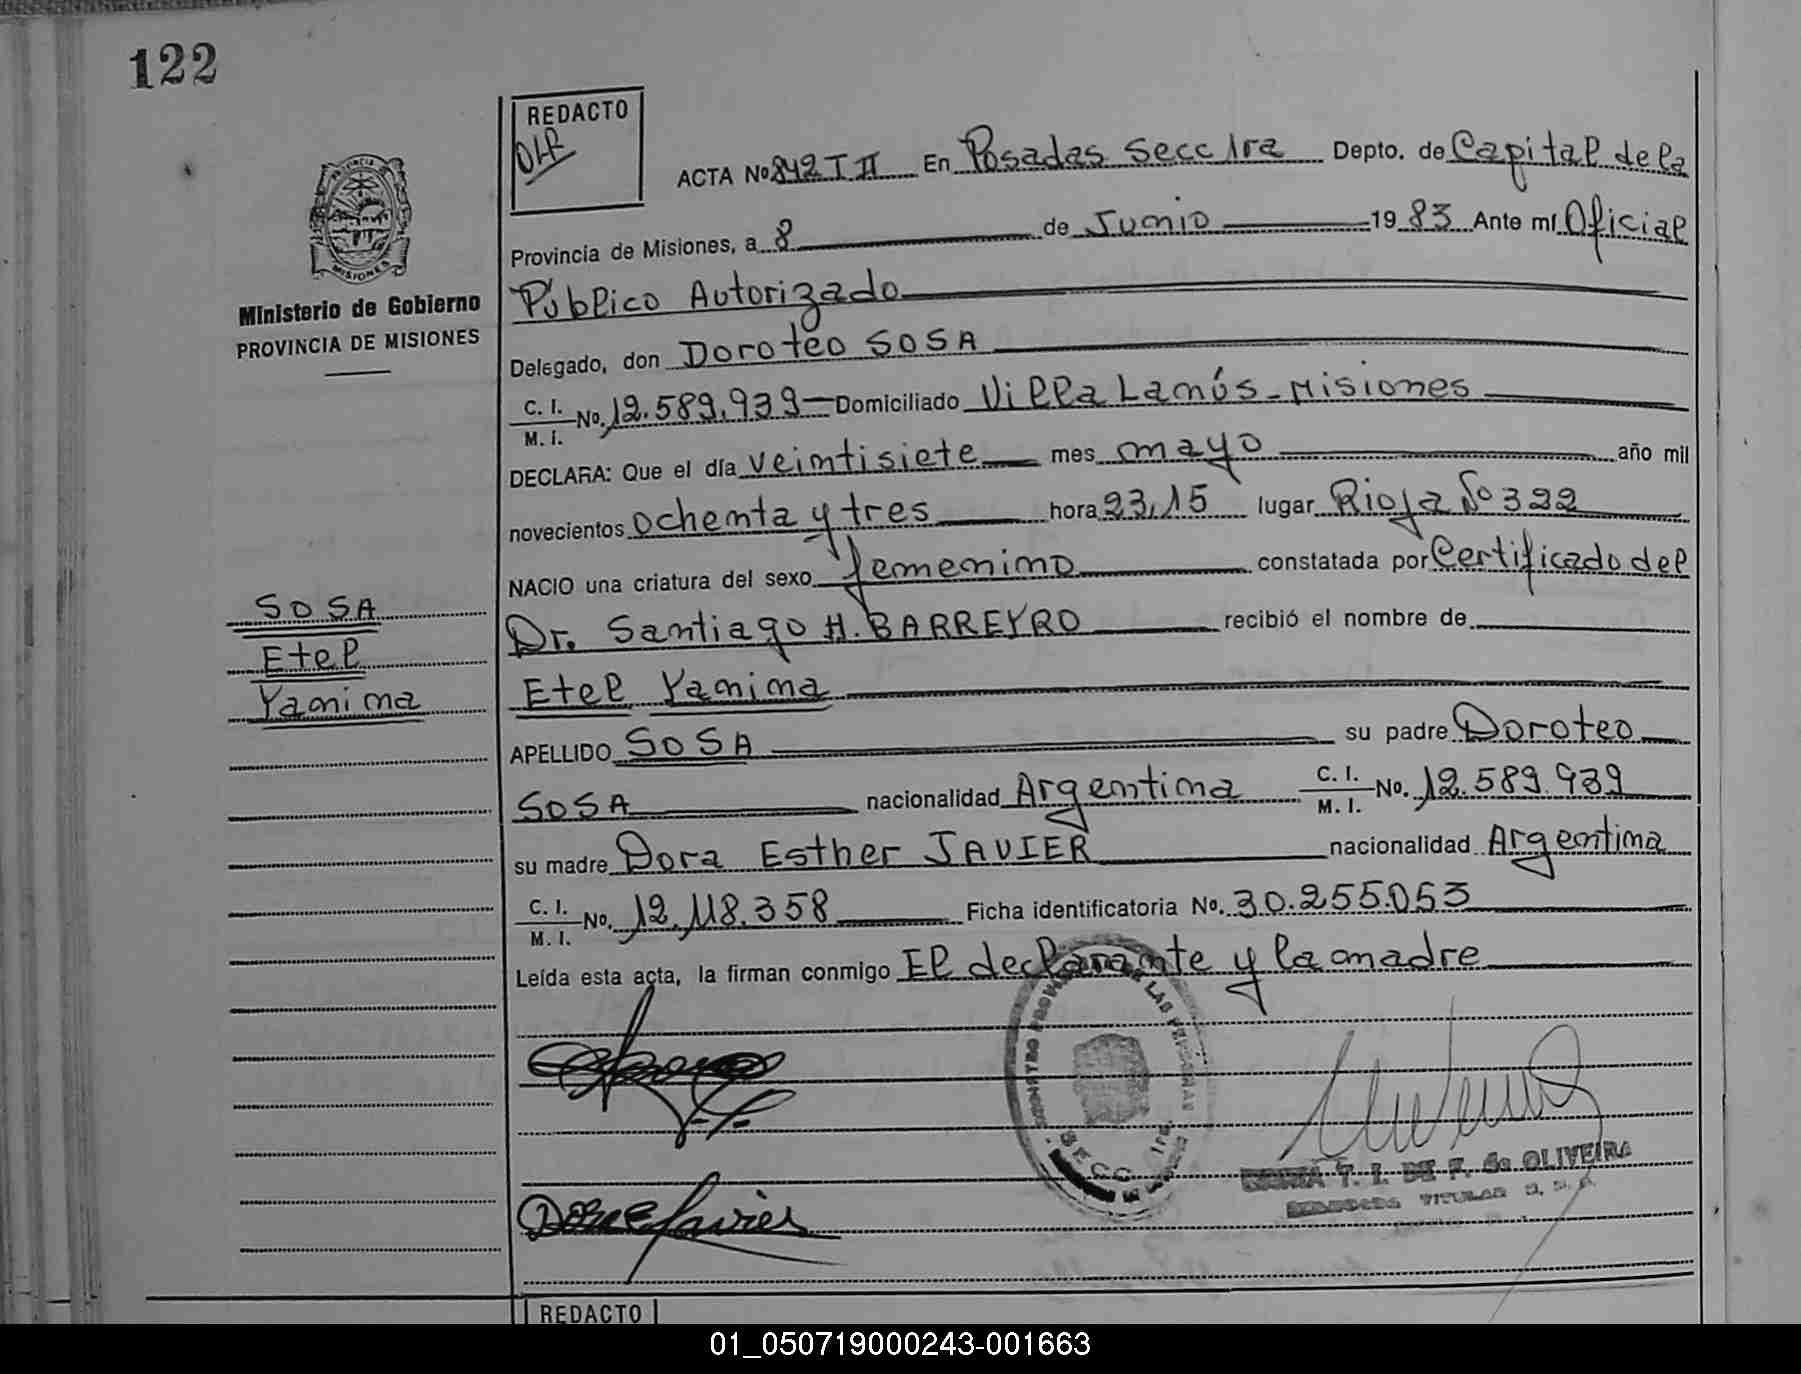 122
REDACTO
OLR
ACTA No 842 T II En Posadas Secc 1ra Depto. de Capital de la
Provincia de Misiones, a 8 de Junio 19 83 Ante mí Oficial
Público Autorizado
Delegado, don Doroteo SOSA
C. I. / M. I. No. 12.589.939 Domiciliado Villa Lanús - Misiones
DECLARA: Que el día veintisiete mes mayo año mil
novecientos ochenta y tres hora 23,15 lugar Rioja No 322
NACIO una criatura del sexo femenino constatada por Certificado del
Dr. Santiago H. BARREYRO recibió el nombre de
Etel Yanina
APELLIDO SOSA su padre Doroteo
SOSA nacionalidad Argentina C. I. / M. I. No. 12.589.939
su madre Dora Esther JAVIER nacionalidad Argentina
C. I. / M. I. No. 12.118.358 Ficha identificatoria No. 30.255.053
Leída esta acta, la firman conmigo El declarante y la madre
PROVINCIA
MISIONES
Ministerio de Gobierno
PROVINCIA DE MISIONES
SOSA
Etel
Yanina
DE LAS PERSONAS
SECC. 1ra.
T. I. DE F. de OLIVEIRA
TITULAR
Dora E Javier
REDACTO
01_050719000243-001663